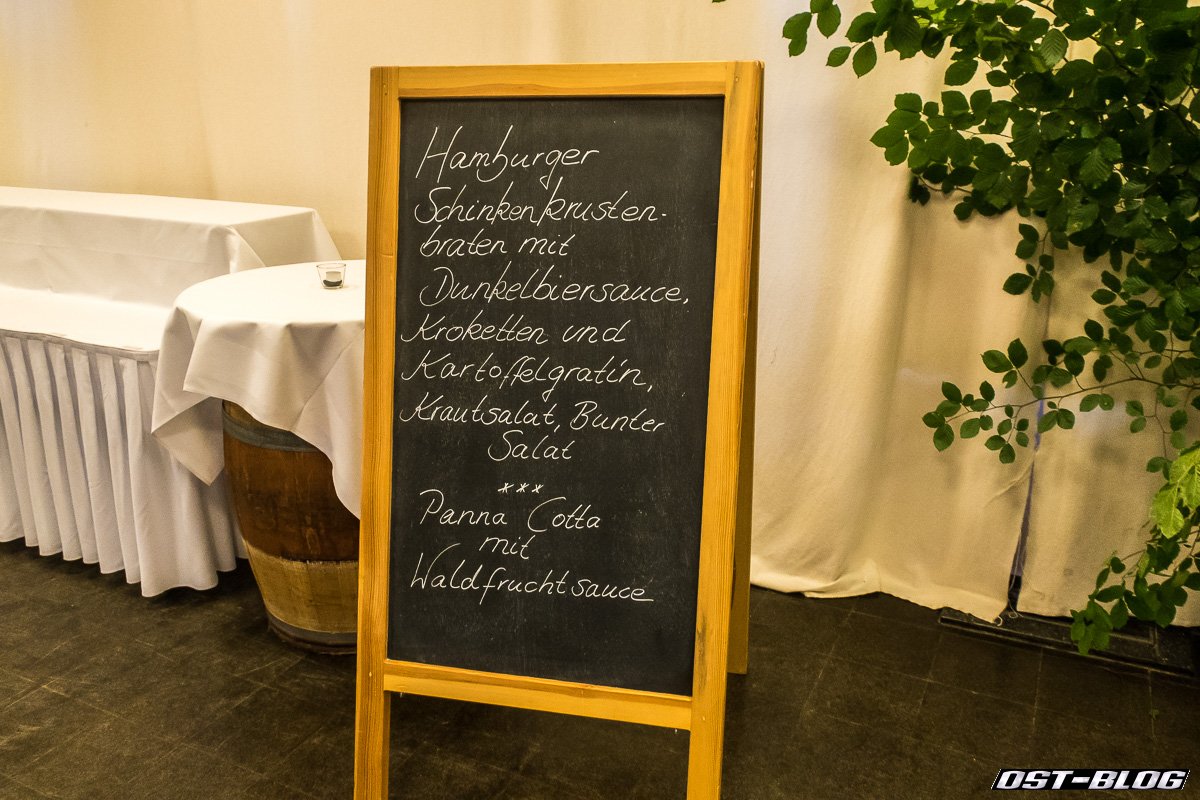 Hamburger
Schinkenkrusten-
braten mit
Dunkelbiersauce,
Kroketten und
Kartoffelgratin,
Krautsalat, Bunter
Salat
***
Panna Cotta
mit
Waldfruchtsauce
OST-BLOG